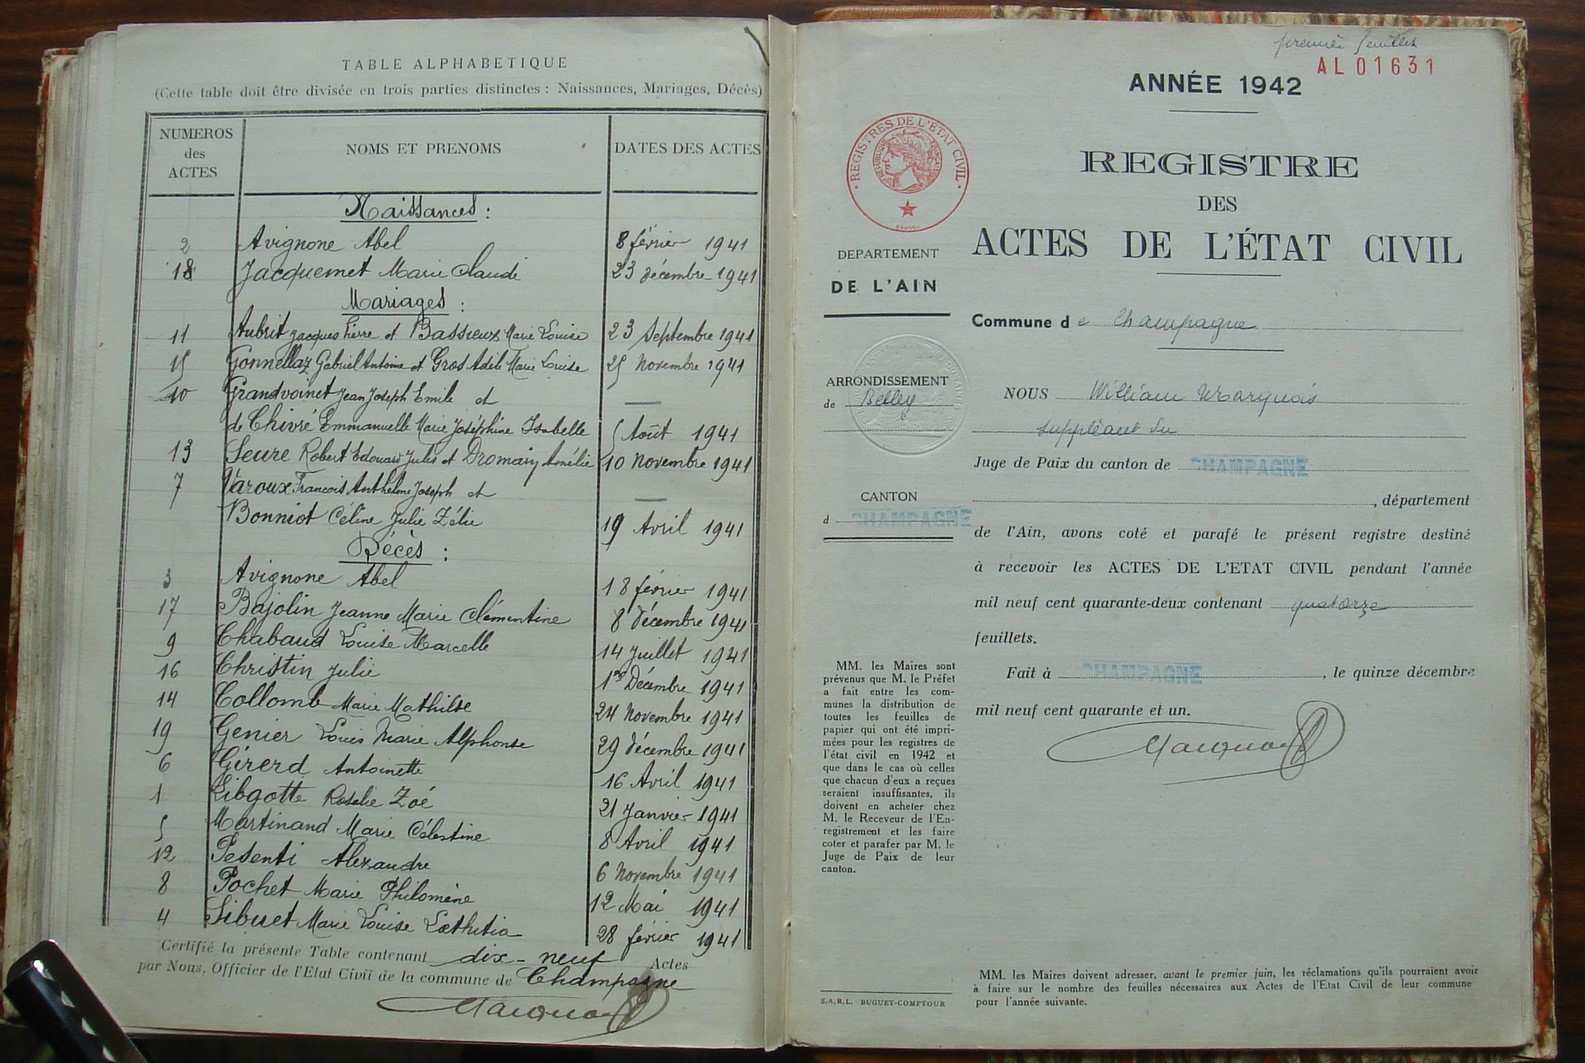 TABLE ALPHABETIQUE
(Cette table doit être divisée en trois parties distinctes : Naissances, Mariages, Décès)
NUMEROS des ACTES
NOMS ET PRENOMS
DATES DES ACTES
Naissances :
2 Avignone Abel 8 février 1941
18 Jacquemet Marie Claude 23 décembre 1941
Mariages :
11 Aubrit Jacques Pierre et Bassieux Marie Louise 23 Septembre 1941
15 Gonnellaz Gabriel Antoine et Gros Adèle Marie Louise 25 Novembre 1941
10 Grandvoinet Jean Joseph Emile et —
de Chivré Emmanuelle Marie Joséphine Isabelle 5 Août 1941
13 Seure Robert Edouard Jules et Dromain Amélie 10 Novembre 1941
7 Varoux Francois Anthelme Joseph et —
Bonniot Céline Julie Zélie 19 Avril 1941
Décès :
3 Avignone Abel 18 février 1941
17 Bajolin Jeanne Marie Clémentine 8 décembre 1941
9 Chabaud Louise Marcelle 14 Juillet 1941
16 Christin Julie 1er Décembre 1941
14 Collomb Marie Mathilde 24 Novembre 1941
19 Génier Louis Marie Alphonse 29 décembre 1941
6 Girerd Antoinette 16 Avril 1941
1 Libgotte Rosalie Zoé 21 Janvier 1941
5 Martinand Marie Célestine 8 Avril 1941
12 Pesenti Alexandre 6 Novembre 1941
8 Pochet Marie Philomène 12 Mai 1941
4 Sibuet Marie Louise Læthitia 28 février 1941
Certifié la présente Table contenant dix-neuf Actes
par Nous, Officier de l'Etat Civil de la commune de Champagne
premier feuillet
AL01631
ANNÉE 1942
REGISTRES DE L'ÉTAT CIVIL
REGISTRE
DES
ACTES DE L'ÉTAT CIVIL
DEPARTEMENT
DE L'AIN
Commune de Champagne
ARRONDISSEMENT
de Belley
CANTON
d CHAMPAGNE
NOUS William Marquois
suppléant du
Juge de Paix du canton de CHAMPAGNE
, département
de l'Ain, avons coté et parafé le présent registre destiné
à recevoir les ACTES DE L'ETAT CIVIL pendant l'année
mil neuf cent quarante-deux contenant quatorze
feuillets.
Fait à CHAMPAGNE, le quinze décembre
mil neuf cent quarante et un.
MM. les Maires sont
prévenus que M. le Préfet
a fait entre les com-
munes la distribution de
toutes les feuilles de
papier qui ont été impri-
mées pour les registres de
l'état civil en 1942 et
que dans le cas où celles
que chacun d'eux a reçues
seraient insuffisantes, ils
doivent en acheter chez
M. le Receveur de l'En-
registrement et les faire
coter et parafer par M. le
Juge de Paix de leur
canton.
S.A.R.L. BUGUET-COMPTOUR
MM. les Maires doivent adresser, avant le premier juin, les réclamations qu'ils pourraient avoir
à faire sur le nombre des feuilles nécessaires aux Actes de l'Etat Civil de leur commune
pour l'année suivante.